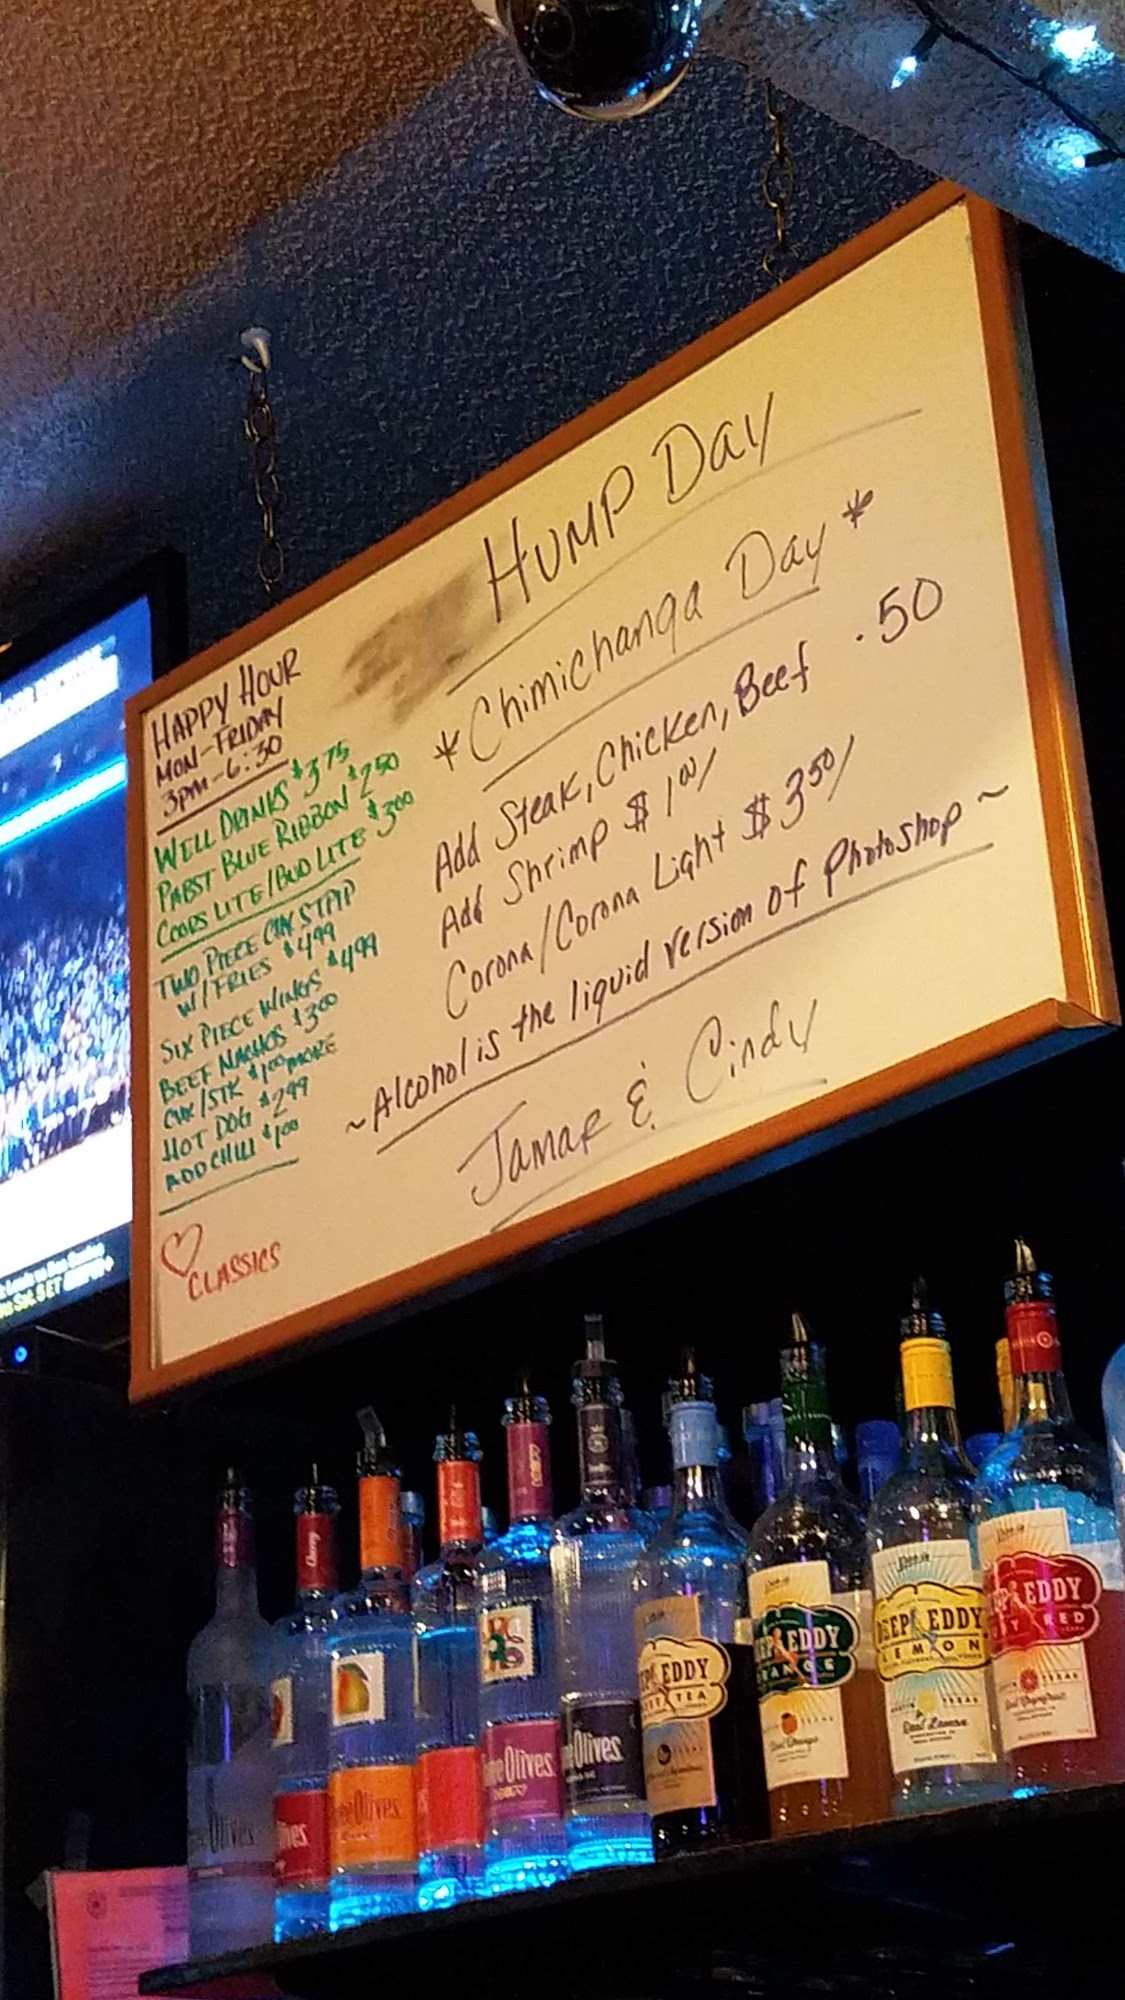 HUMP Day
*Chimichanga Day*
Add Steak, Chicken, Beef .50
Add Shrimp $1.00/
Corona/Corona Light $3.50/
~Alcohol is the liquid version of Photoshop~
Jamar & Cindy
HAPPY HOUR
MON-FRIDAY
3pm-6:30
WELL DRINKS $3.75
PABST BLUE RIBBON $2.50
COORS LITE/BUD LITE $3.00
TWO PIECE CHK STRIP
W/FRIES $4.99
SIX PIECE WINGS $4.99
BEEF NACHOS $3.00
CHK/STK $1.00 MORE
HOT DOG $2.99
ADD CHILI $1.00
CLASSICS
Cherry
Olives
Olives
Olives
Olives
EDDY
TEA
EDDY
Real Orange
DEEP EDDY
LEMON
Real Lemon
EDDY
RED
TEXAS